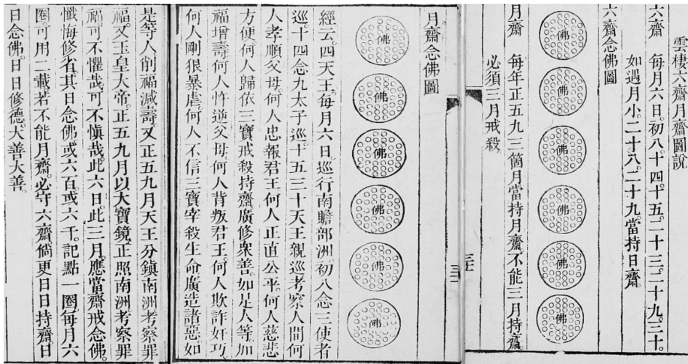 雲棲六齋月齋圖說
六齋 每月六日。初八。十四。十五。二十三。二十九。三十。
如遇月小。二十八。二十九當持日齋
六齋念佛圖
佛
佛
佛
佛
佛
佛
月齋 每年正五九三箇月當持月齋不能三月持齋
必須三月戒殺
月齋念佛圖
佛
佛
佛
佛
佛
佛
經云四天王。每月六日。巡行南贍部洲。初八念三使者
巡。十四念九太子巡。十五三十天王親巡。考察人間。何
人孝順父母。何人忠報君王。何人正直公平。何人慈悲
方便。何人歸依三寶。戒殺持齋。廣修衆善。如是人等。加
福增壽。何人忤逆父母。何人背叛君王。何人欺詐奸巧。
何人剛狠暴虐。何人不信三寶。宰殺生命。廣造諸惡。如
是等人。削福減壽。又正五九月。天王分鎮南洲。考察罪
福。又玉皇大帝。正五九月。以大寶鏡。正照南洲。考察罪
福。可不懼哉。可不慎哉。此六日。此三月。應當齋戒念佛。
懺悔修省。其日念佛。或六百。或六千。記點一圈。每月六
圈。可用二載。若不能月齋。必守六齋。倘更日日持齋。日
日念佛。日日修德。大善大善